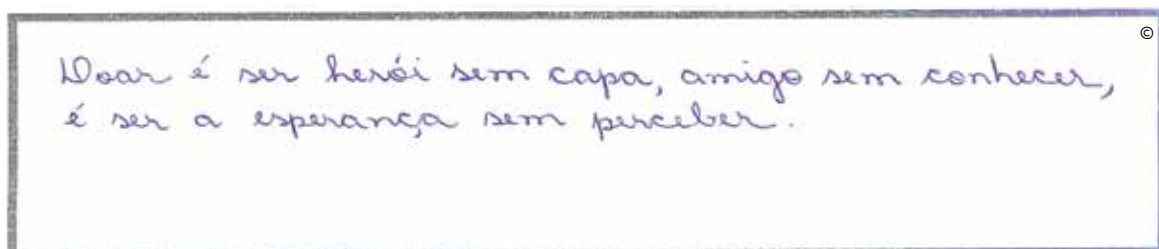 ©
Doar é ser herói sem capa, amigo sem conhecer,
é ser a esperança sem perceber.